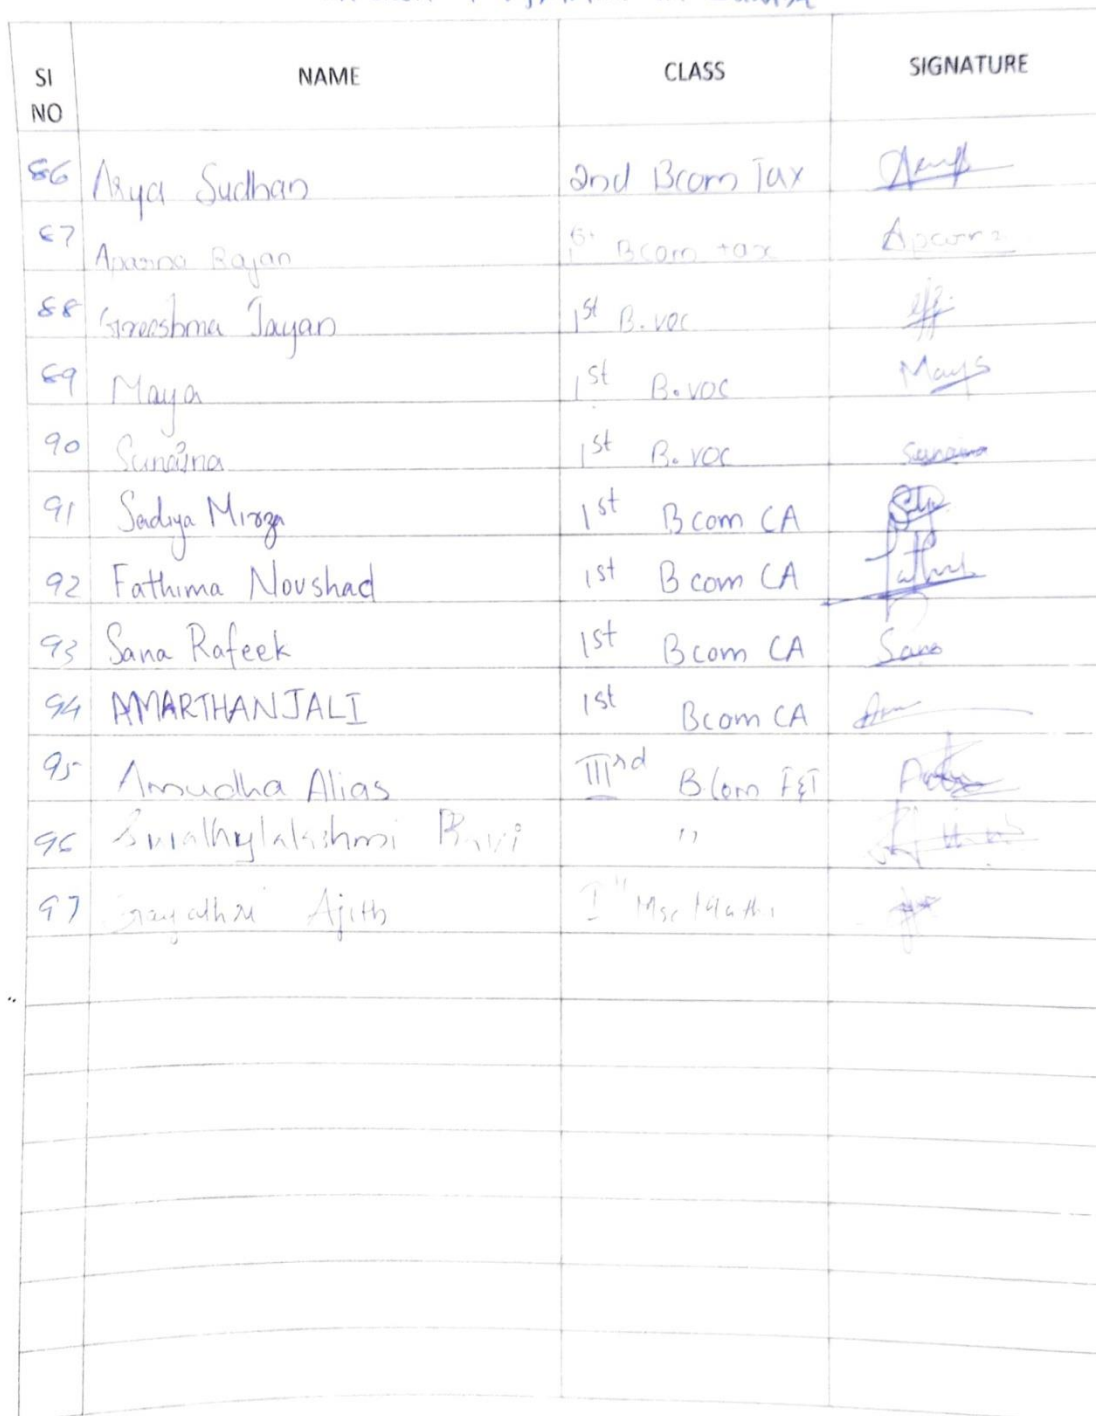 SI NO NAME CLASS SIGNATURE
86 Arya Sudhan 2nd Bcom Tax
87 Aparna Rajan 1st Bcom tax Aparna
88 Greeshma Jayan 1st B.voc
89 Maya 1st B.voc Maya
90 Sunaina 1st B.voc Sunaina
91 Sadiya Mirza 1st Bcom CA
92 Fathima Noushad 1st Bcom CA Fathima
93 Sana Rafeek 1st Bcom CA Sana
94 AMARTHANJALI 1st Bcom CA
95 Anrudha Alias IIIrd BCom F&T
96 "
97 Gayathri Ajith Msc Maths